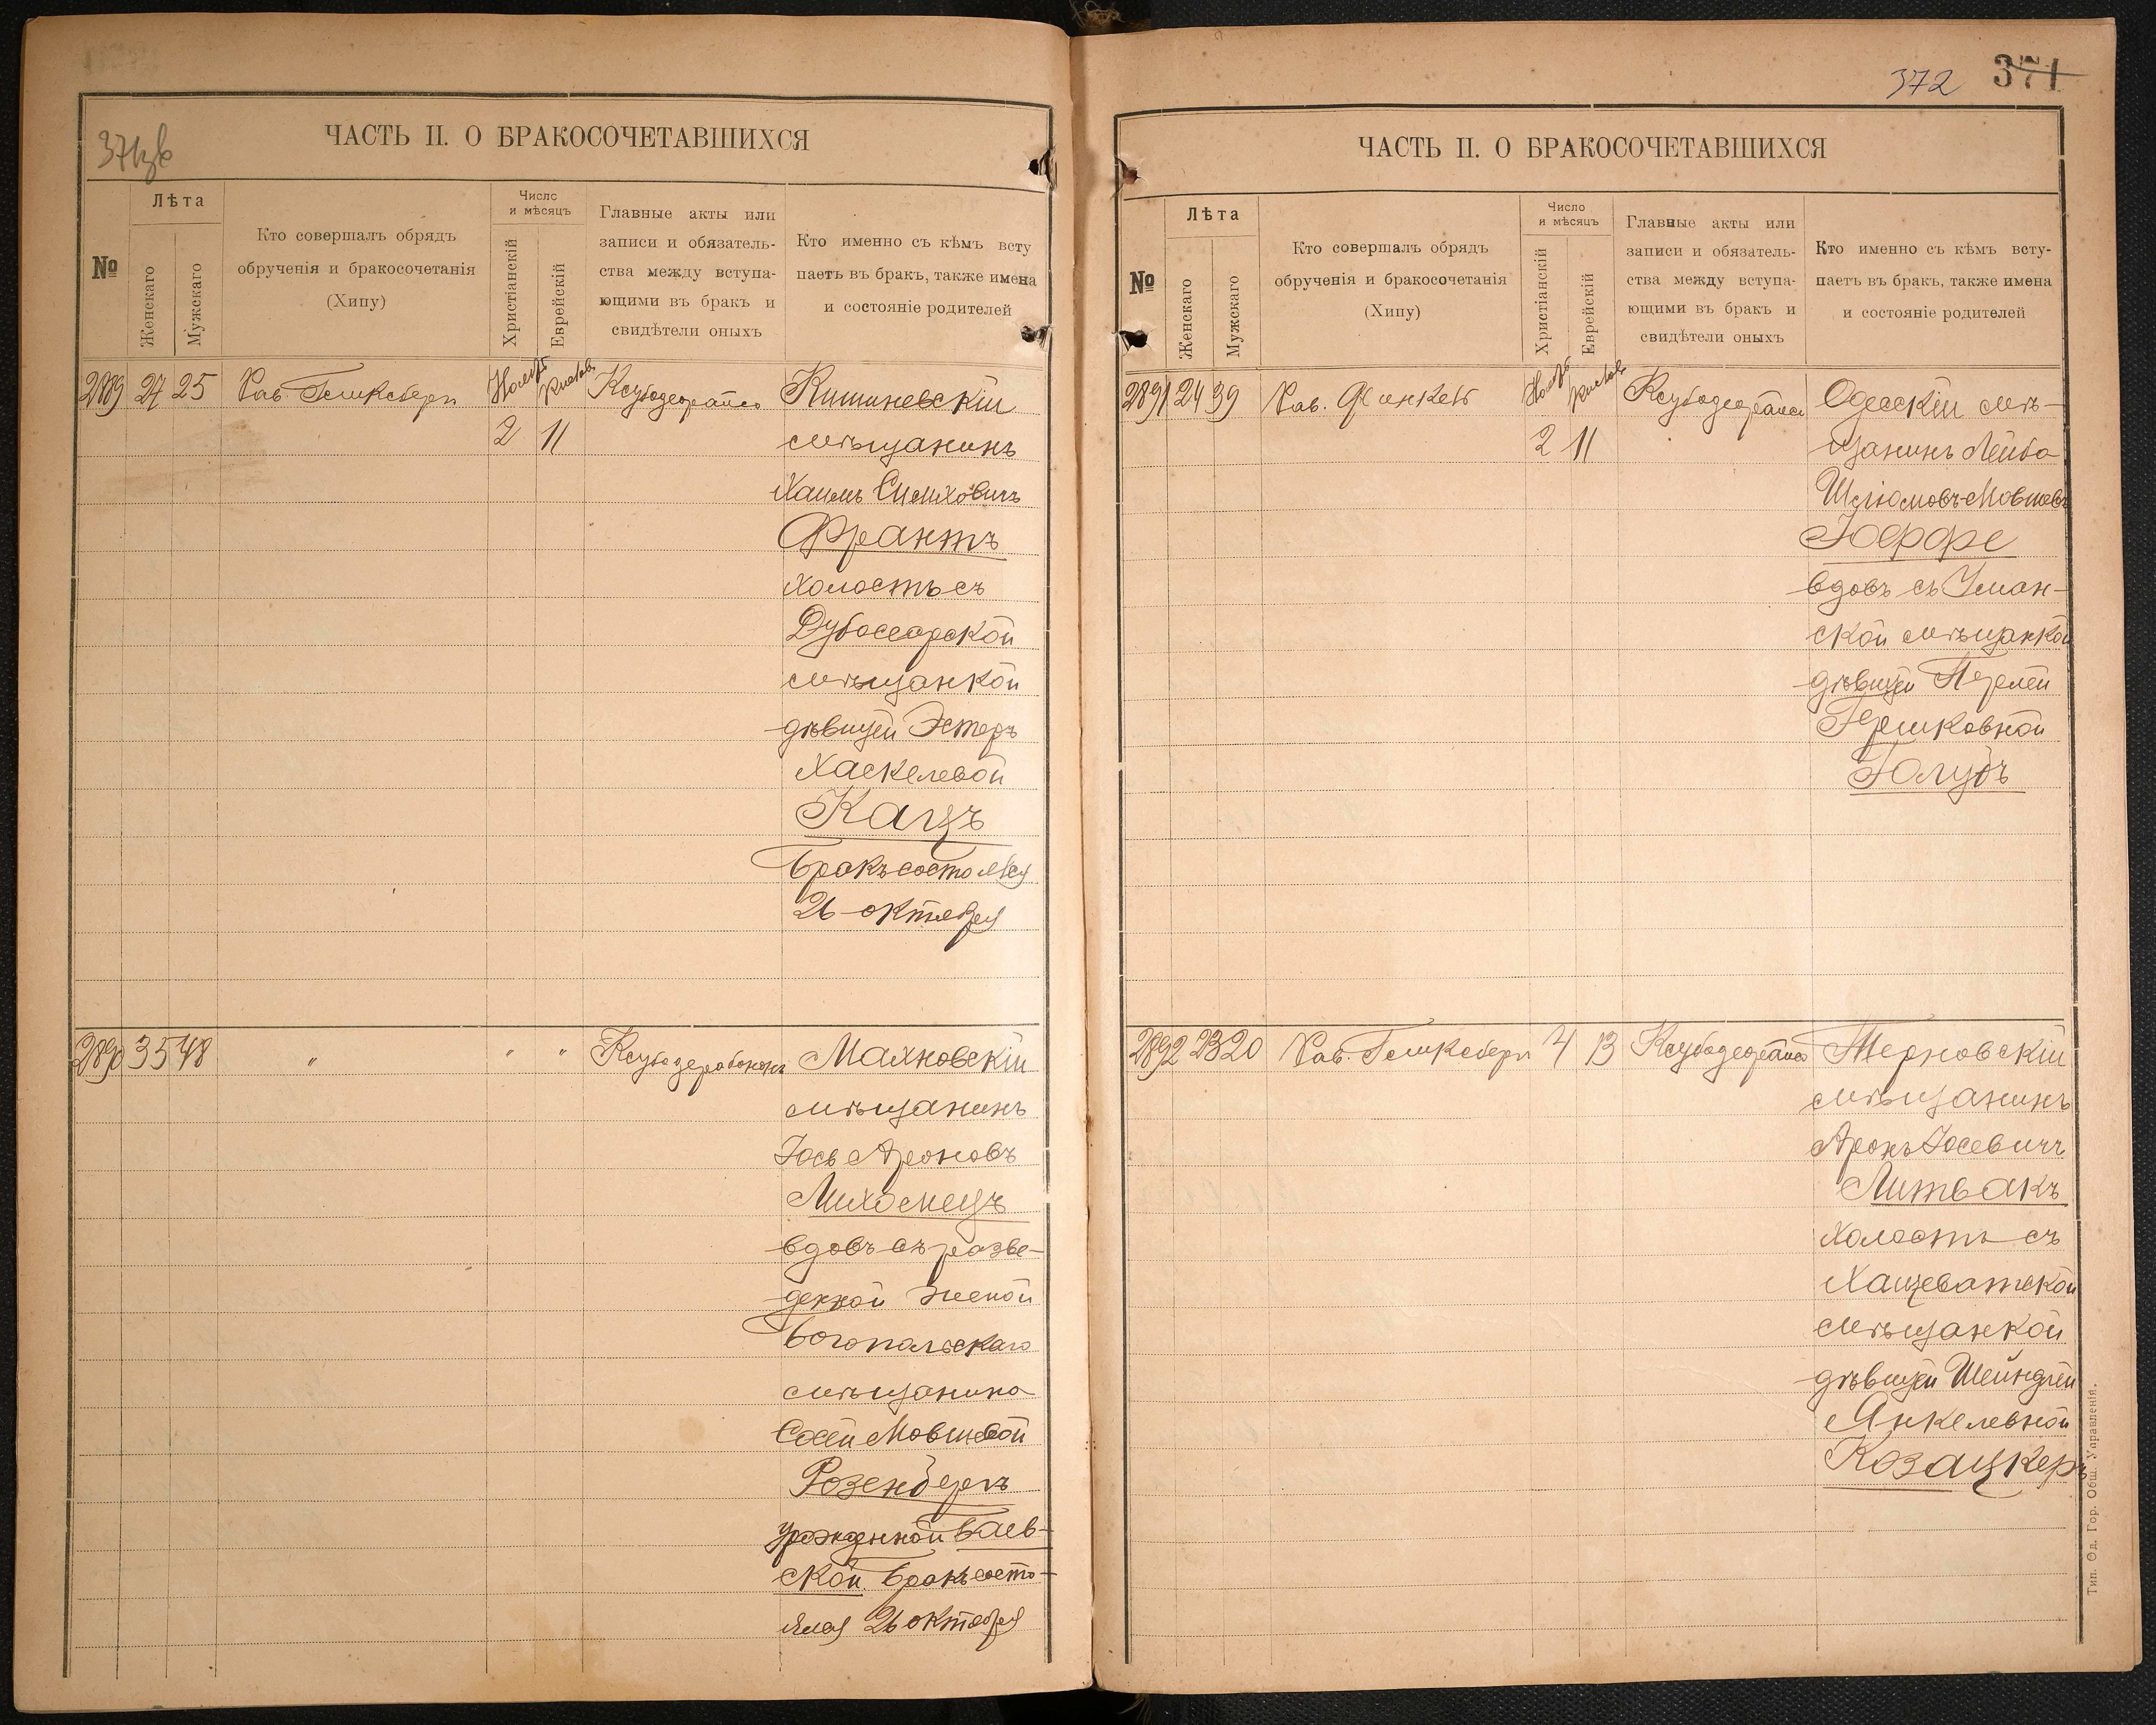 371зв
ЧАСТЬ II. О БРАКОСОЧЕТАВШИХСЯ
№
Лѣта
Женскаго
Мужскаго
Кто совершалъ обрядъ
обрученія и бракосочетанія
(Хипу)
Число
и мѣсяцъ
Христіанскій
Еврейскій
Главные акты или
записи и обязатель-
ства между вступа-
ющими въ бракъ и
свидѣтели оныхъ
Кто именно съ кѣмъ всту
паетъ въ бракъ, также имена
и состояніе родителей
2889 27 25 Рав. Гликсберг Нояб. Кислов. Ксубадеорайсо Кишиневскій
2 11 мѣщанинъ
Хаимъ
Франтъ
холостъ съ
Дубоссарской
мѣщанкой
дѣвицей Эстеръ
Хаскелевой
Кацъ
Бракъ состоялся
26 октября
2890 35 48 " " " Махновскій
мѣщанинъ
Іось Ароновъ
Лихомецъ
вдовъ съ разве-
денной женой
Богопольскаго
мѣщанина
Сосей Мовшевой
Розенбергъ
урожденной Баев-
ской. Бракъ состо-
ялся 26 октября
372 371
ЧАСТЬ II. О БРАКОСОЧЕТАВШИХСЯ
№
Лѣта
Женскаго
Мужскаго
Кто совершалъ обрядъ
обрученія и бракосочетанія
(Хипу)
Число
и мѣсяцъ
Христіанскій
Еврейскій
Главные акты или
записи и обязатель-
ства между вступа-
ющими въ бракъ и
свидѣтели оныхъ
Кто именно съ кѣмъ всту-
паетъ въ бракъ, также имена
и состояніе родителей
2891 24 39 Рав. Финкель Нояб. Кислов. Ксубадеорайсо Одесскій мѣ-
2 11 щанинъ Лейба
Шлюмовъ-Мовшевъ
Іоффе
вдовъ съ Уман-
ской мѣщанкой
дѣвицей Перлей
Гершковной
Голубъ
2892 23 20 Рав. Гликсберг 4 13 Ксубадеорайсо Терновскій
мѣщанинъ
Аронъ Іосевичъ
Литвакъ
холостъ съ
Хащеватской
мѣщанкой
дѣвицей Шейндлей
Янкелевной
Козацкеръ
Тип. Од. Гор. Общ. Управленія.